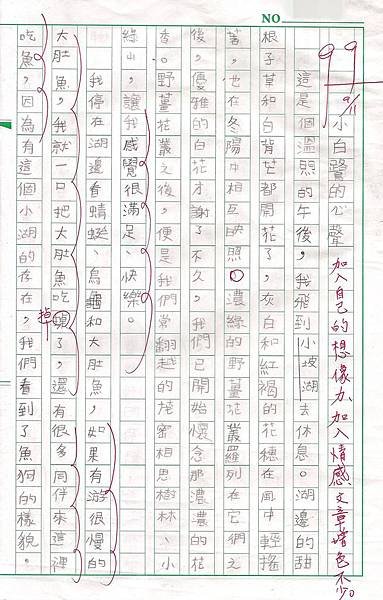 NO.
99
9/11
加入自己的想像力,加入情感,文章增色不少。
小白鷺的心聲
這是個溫照的午後,我飛到小坡湖去休息。湖邊的甜
根子草和白背芒都開花了,灰白和紅褐的花穗在風中輕搖
著,也在冬陽中相互映照。濃綠的野薑花叢羅列在它們之
後,優雅的白花才謝了不久,我們已開始懷念那濃濃的花
香。野薑花叢之後,便是我們常翻越的茂密相思樹林、小
綠山,讓我感覺很滿足、快樂。
我停在湖邊看蜻蜓、烏龜和大肚魚,如果有游很慢的
大肚魚,我就一口把大肚魚吃了,還有很多同伴來這裡
掉
吃魚,因為有這個小湖的存在,我們看到了魚狗的樣貌。